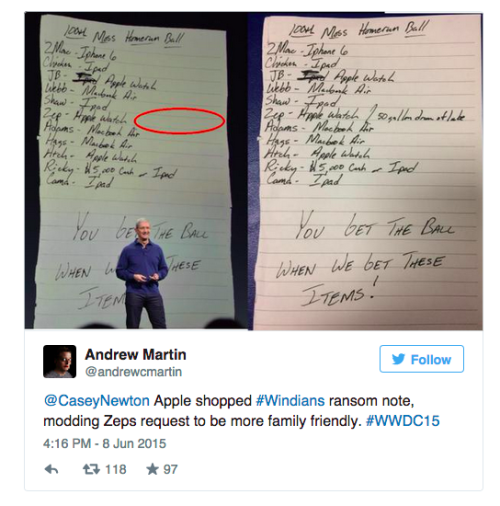 100th Moss Homerun Ball
2Mac - Iphone 6
Chicken - Ipad
JB - Apple Watch
Webb - Macbook Air
Shaw - Ipad
Zep - Apple Watch
Adams - Macbook Air
Hags - Macbook Air
Atch - Apple Watch
Ricky - $5,000 Cash or Ipad
- Ipad
YOU GE THE BALL
WHEN W THESE
ITEM
100th Moss Homerun Ball
2Mac - Iphone 6
Chicken - Ipad
JB - Apple Watch
Webb - Macbook Air
Shaw - Ipad
Zep - Apple Watch / 50 gallon drum of lube
Adams - Macbook Air
Hags - Macbook Air
Atch - Apple Watch
Ricky - $5,000 Cash or Ipad
- Ipad
YOU GET THE BALL
WHEN WE GET THESE
ITEMS!
Andrew Martin
@andrewcmartin
Follow
@CaseyNewton Apple shopped #Windians ransom note,
modding Zeps request to be more family friendly. #WWDC15
4:16 PM - 8 Jun 2015
118 97